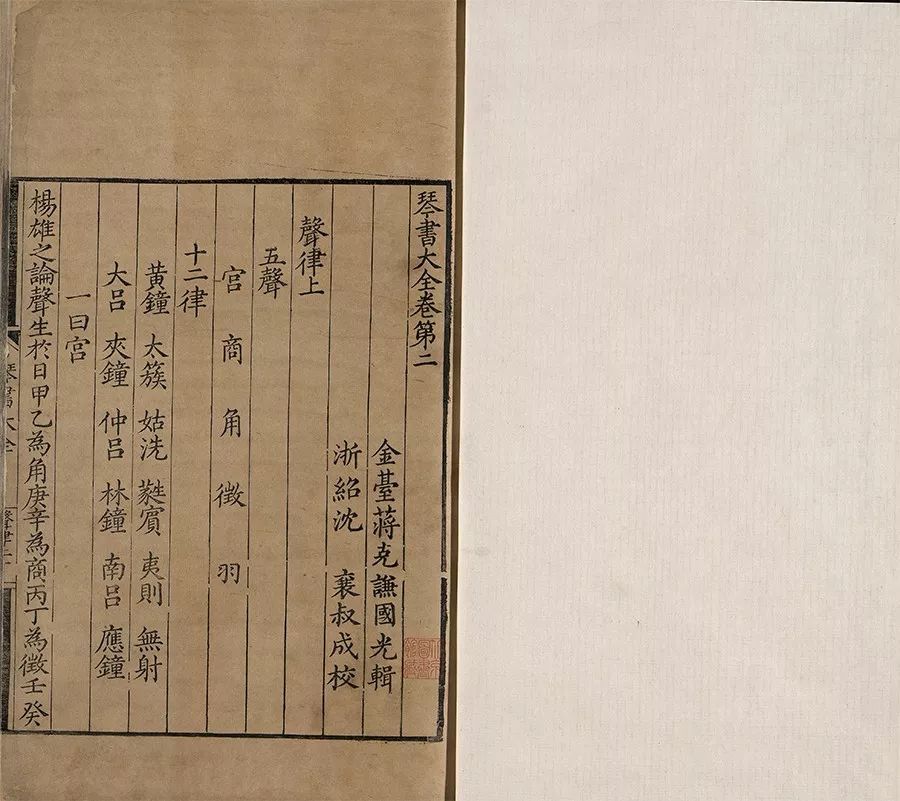 琴書大全卷第二
金臺蔣克謙國光輯
浙紹沈 襄叔成校
聲律上
五聲
宫 商 角 徵 羽
十二律
黃鐘 太簇 姑洗 蕤賓 夷則 無射
大吕 夾鐘 仲吕 林鐘 南吕 應鐘
一曰宫
楊雄之論聲生於日甲乙為角庚辛為商丙丁為徵壬癸
琴書大全